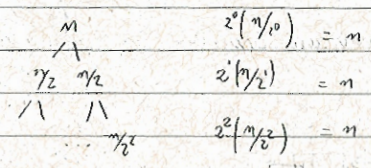 n 2⁰(n/2⁰) = n
n/2 n/2 2¹(n/2¹) = n
n/2² 2²(n/2²) = n